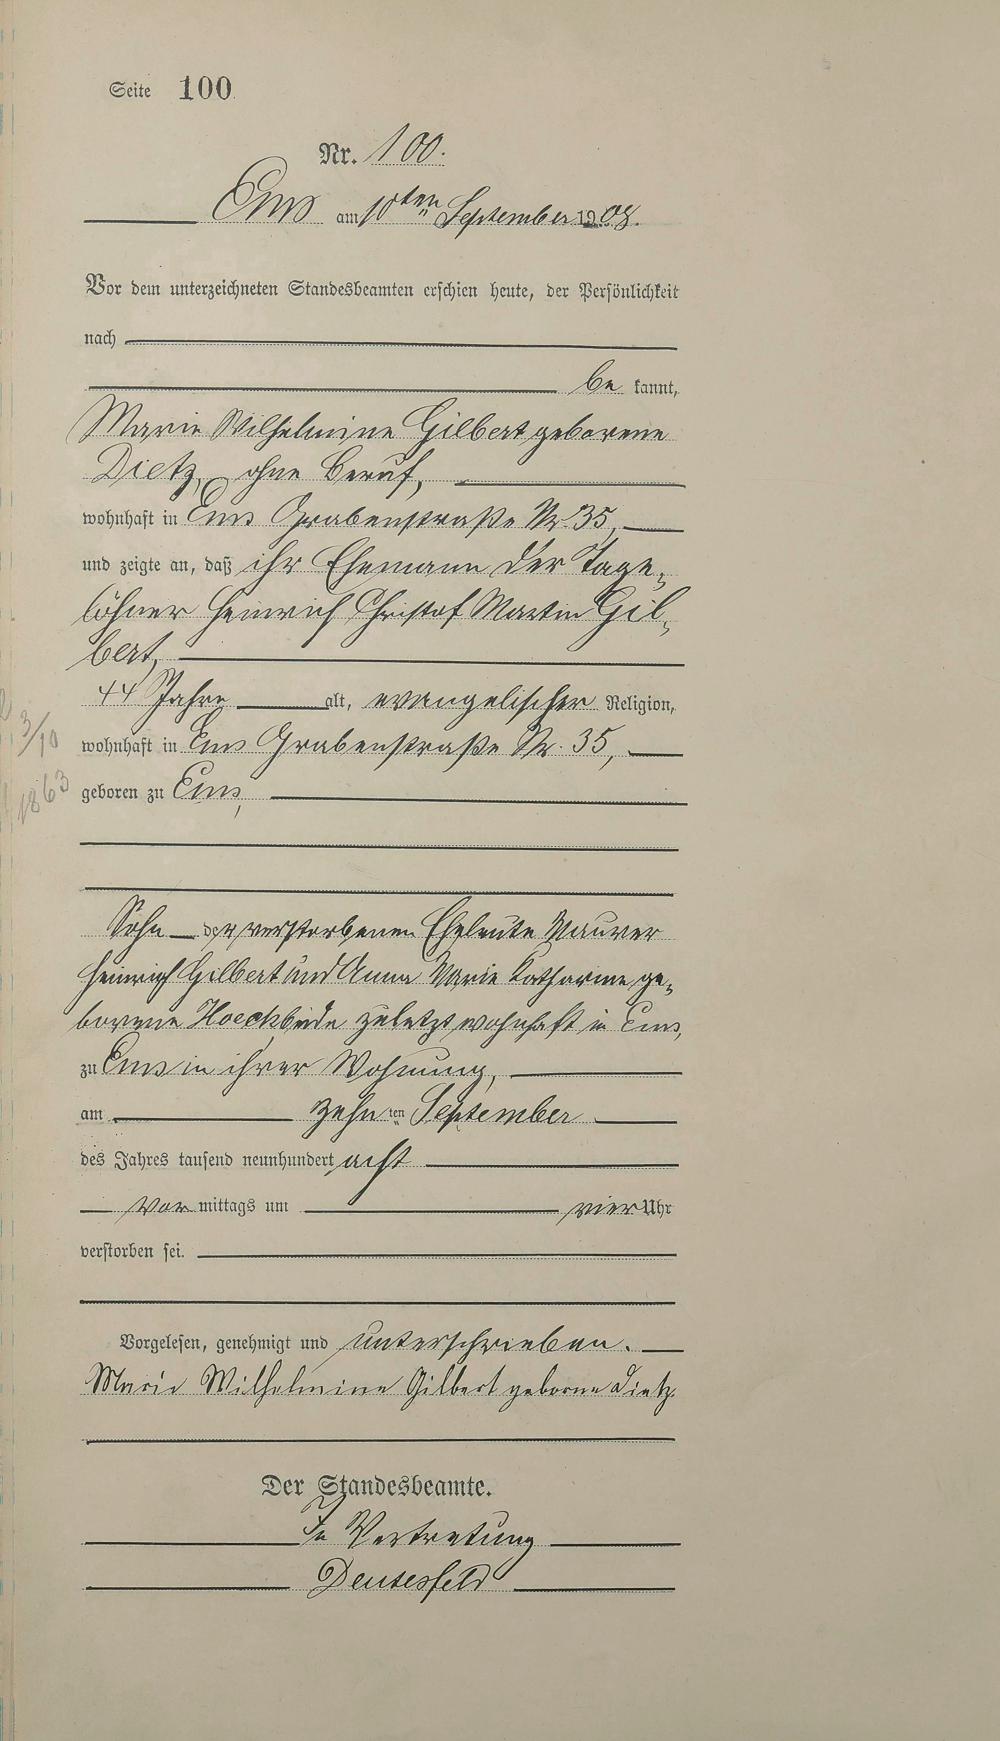 Seite 100
Nr. 100.
Ems am 10ten September 1908.
Vor dem unterzeichneten Standesbeamten erschien heute, der Persönlichkeit
nach
be kannt,
Marie Wilhelmine Gilbert geborene
Dietz, ohne Beruf,
wohnhaft in Ems Grabenstraße Nr. 35,
und zeigte an, daß ihr Ehemann der Tage-
löhner Heinrich Christof Martin Gil-
bert,
44 Jahre alt, evangelischer Religion,
3/10
wohnhaft in Ems Grabenstraße Nr. 35,
1863
geboren zu Ems,
Sohn der verstorbenen Eheleute Maurer
Heinrich Gilbert und Anna Marie Katharine ge-
borene Hoeck beide zuletzt wohnhaft in Ems,
zu Ems in ihrer Wohnung,
am zehnten September
des Jahres tausend neunhundert acht
Vor mittags um vier Uhr
verstorben sei.
Vorgelesen, genehmigt und unterschrieben.
Marie Wilhelmine Gilbert geborne Dietz
Der Standesbeamte.
In Vertretung
Deutesfeld